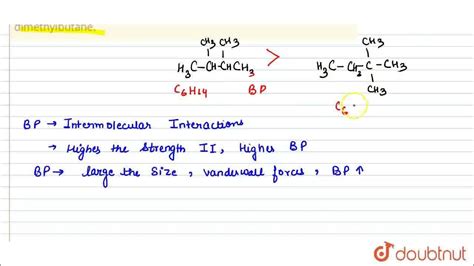 dimethylbutane.
CH₃ CH₃ CH₃
H₃C-CH-CHCH₃ > H₃C-CH₂-C-CH₃
CH₃
C₆H₁₄ BP C₆
BP → Intermolecular Interactions
→ Highes the Strength II, Higher BP
BP → large the Size, vanderwall forces, BP ↑
doubtnut